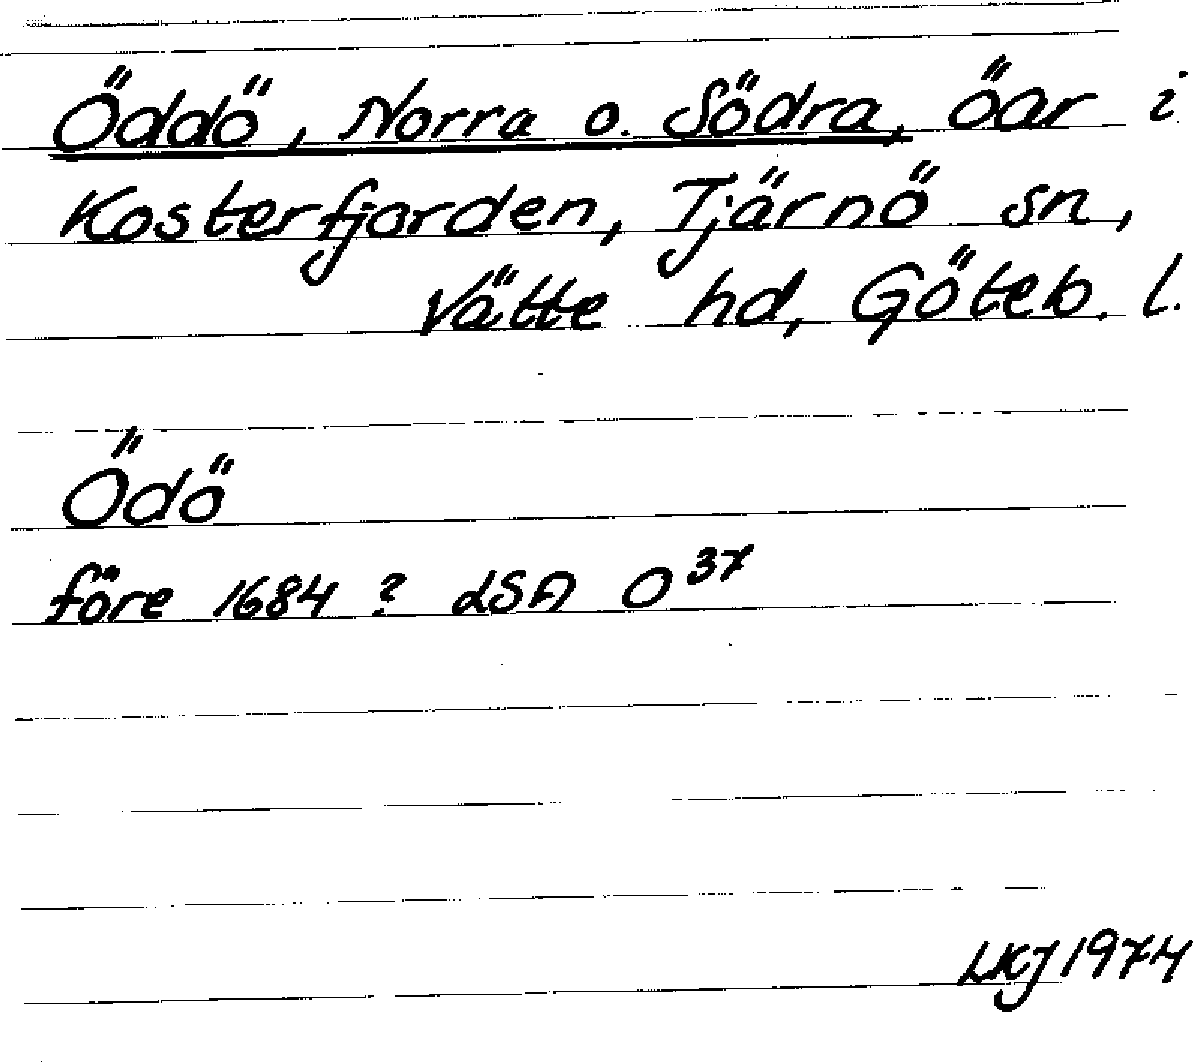 Öddö, Norra o. Södra, öar i
Kosterfjorden, Tjärnö sn,
Vätte hd, Göteb. l.
Ödö
före 1684 ? LSA O 37
LKJ 1974